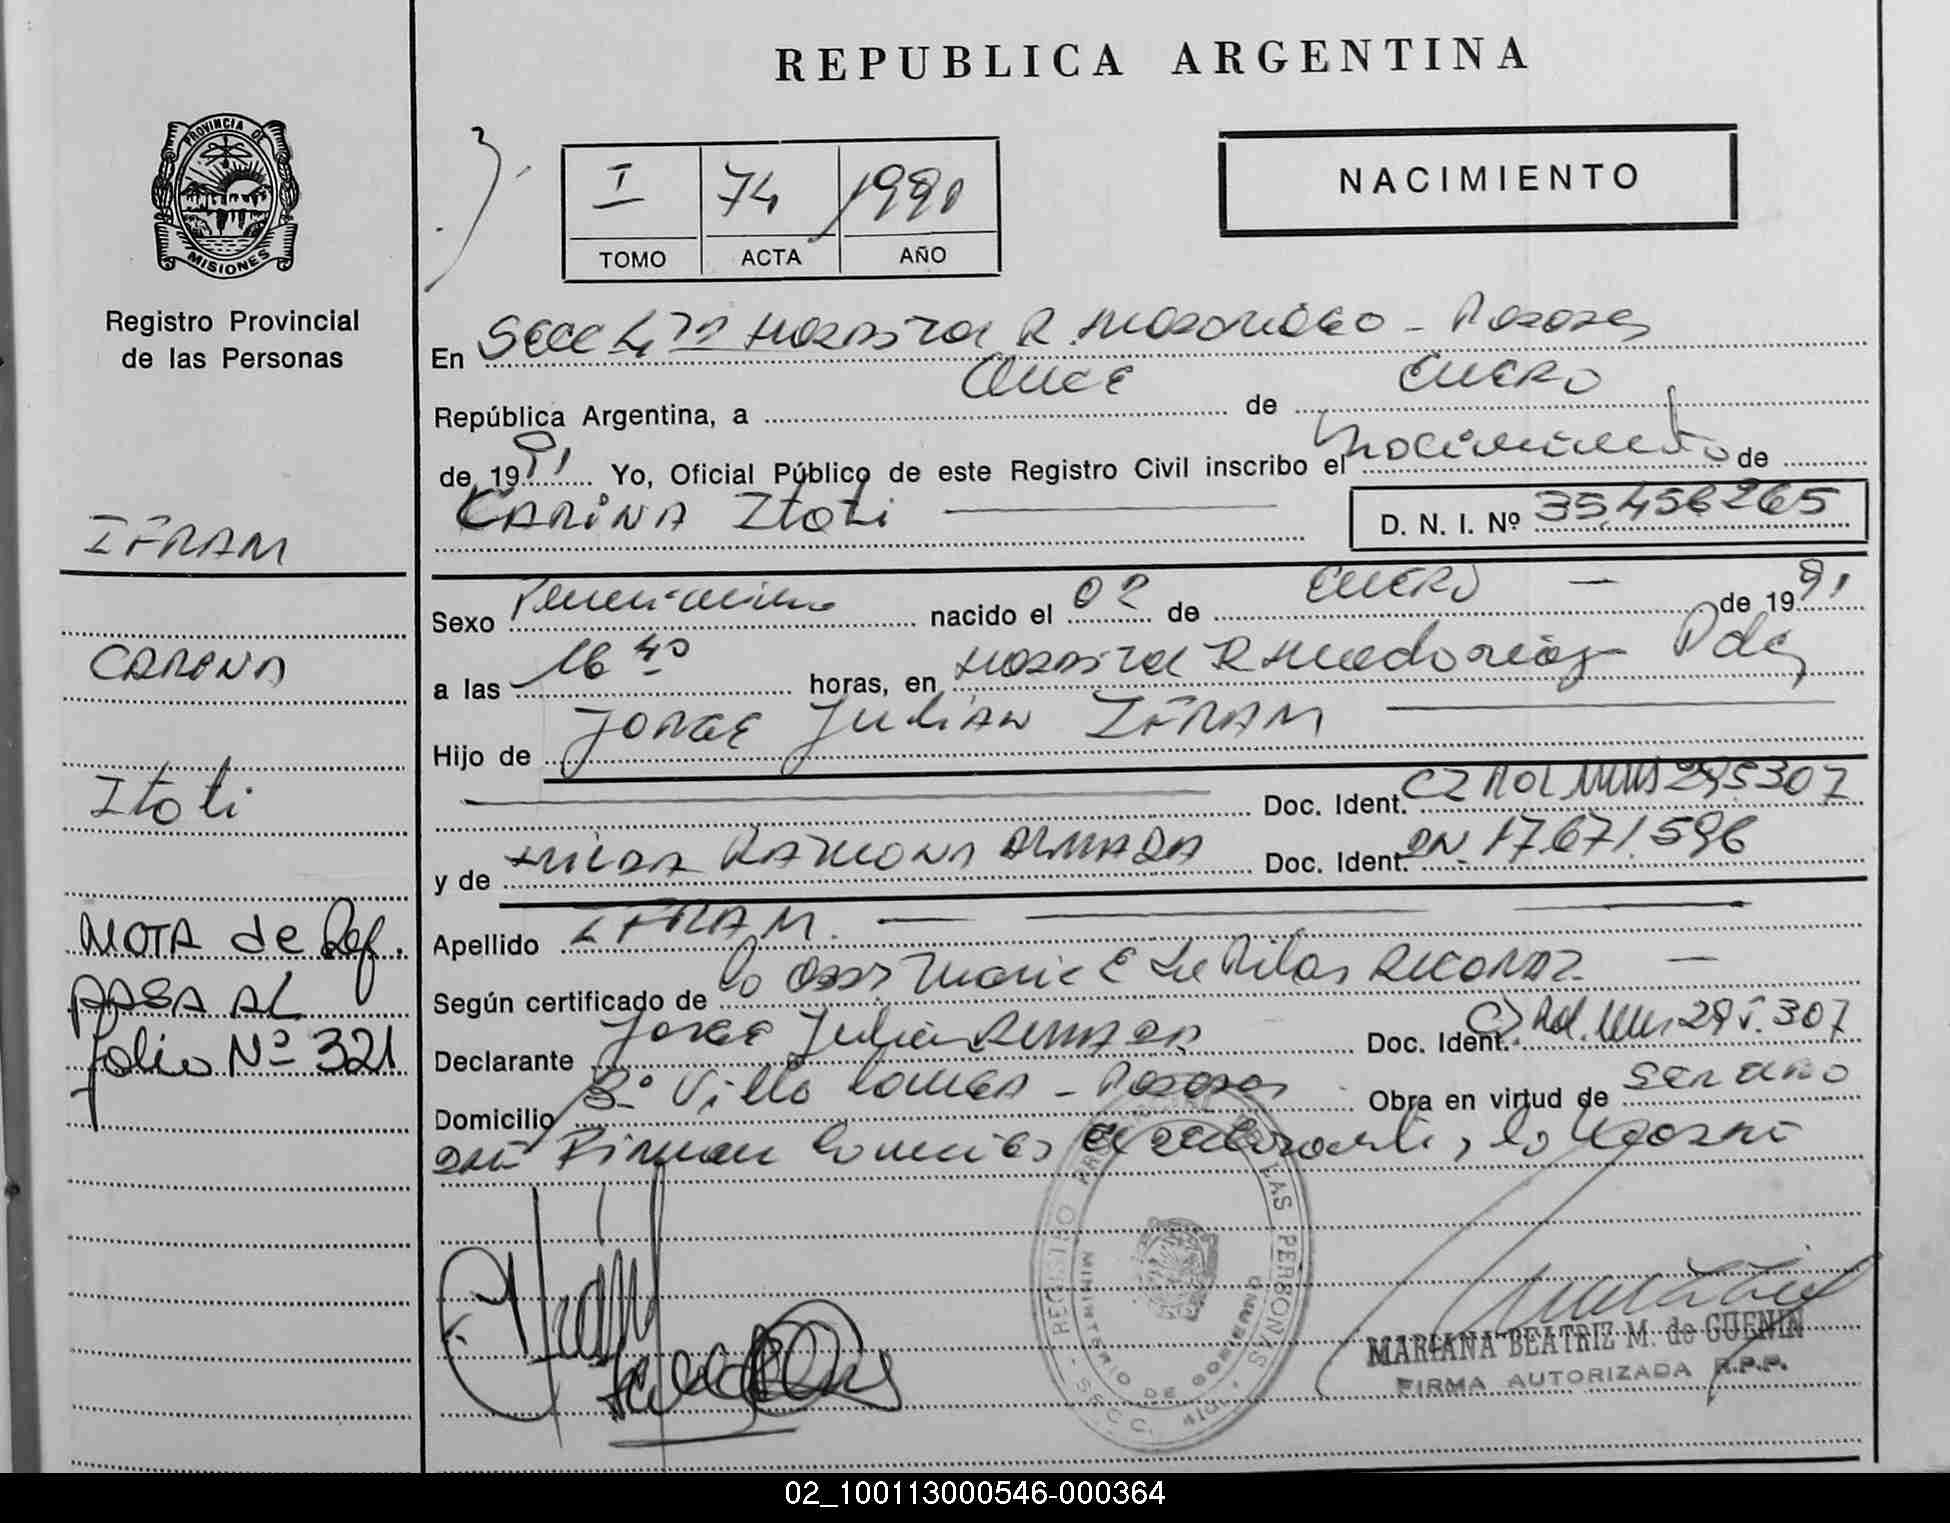 REPUBLICA ARGENTINA
PROVINCIA DE
MISIONES
Registro Provincial
de las Personas
I 74 1991
TOMO ACTA AÑO
NACIMIENTO
En Secc 4ta Hospital R. Madariaga - Posadas
República Argentina, a once de Enero
de 1991 Yo, Oficial Público de este Registro Civil inscribo el nacimiento de
CARINA Itatí D. N. I. Nº 35.456.265
Sexo Femenino nacido el 02 de ENERO de 1991
a las 16 40 horas, en Hospital R Madariaga Pdas
Hijo de JORGE JULIAN IFRAM
Doc. Ident. CI Pol Mnes 295307
y de HILDA RAMONA ALMADA Doc. Ident. DN 17.671.596
Apellido IFRAM
Según certificado de la Obst Maria E de
Declarante Jorge Julian Doc. Ident. CI Pol. Mnes 295.307
Domicilio Bº Villa - Posadas Obra en virtud de ser uno
Firman el declarante, la
IFRAM
CARINA
Itatí
NOTA de Ref.
PASA AL
folio Nº 321
REGISTRO LAS PERSONAS
MINISTERIO DE GOBIERNO
MARIANA BEATRIZ M. de GUENIN
FIRMA AUTORIZADA R.P.P.
02_100113000546-000364